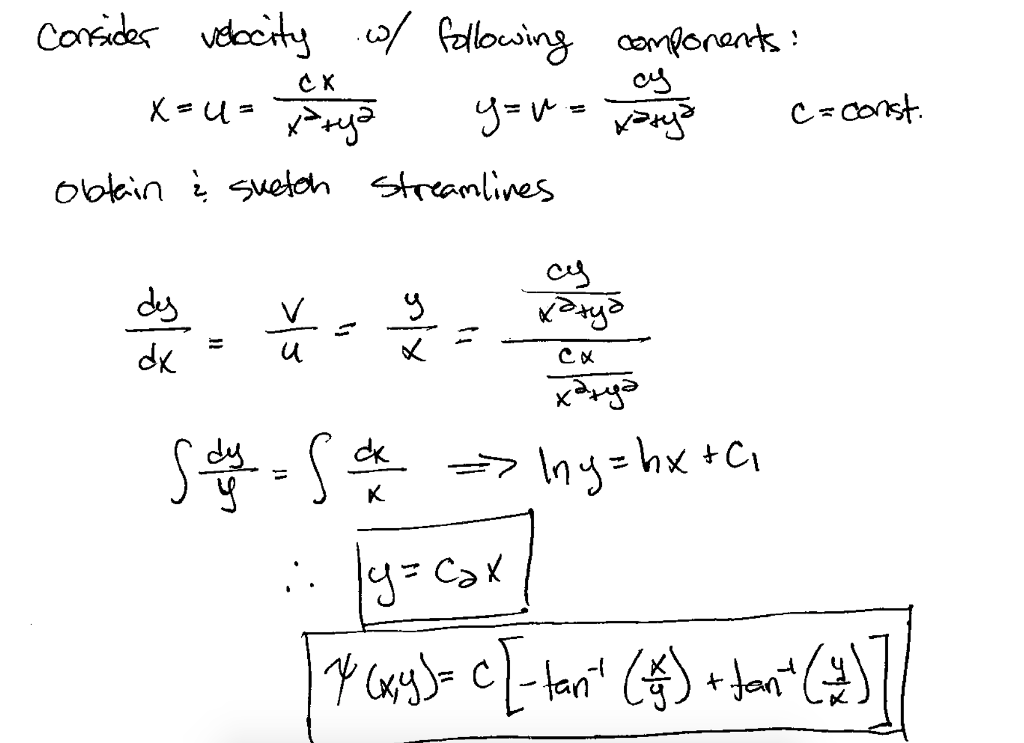 Consider velocity w/ following components:
x = u = cx / (x²+y²)   y = v = cy / (x²+y²)   c = const.
obtain & sketch streamlines
dy/dx = v/u = y/x = (cy / (x²+y²)) / (cx / (x²+y²))
∫ dy/y = ∫ dx/x ⇒ ln y = ln x + C₁
∴ y = C₂x
ψ(x,y) = C[-tan⁻¹(x/y) + tan⁻¹(y/x)]